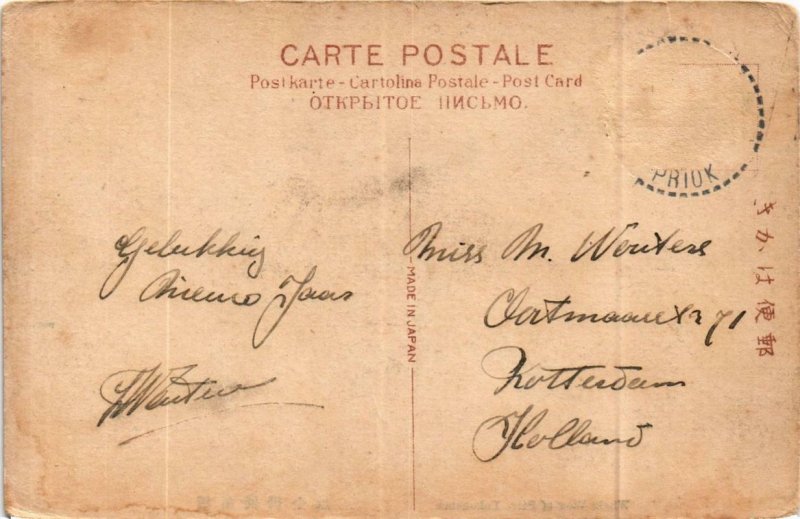 CARTE POSTALE
Postkarte - Cartolina Postale - Post Card
ОТКРЫТОЕ ПИСЬМО.
PRIOK
きかは便郵
Gelukkig
Nieuwo Jaar
Miss M. Wouters
71
Rotterdam
Holland
MADE IN JAPAN